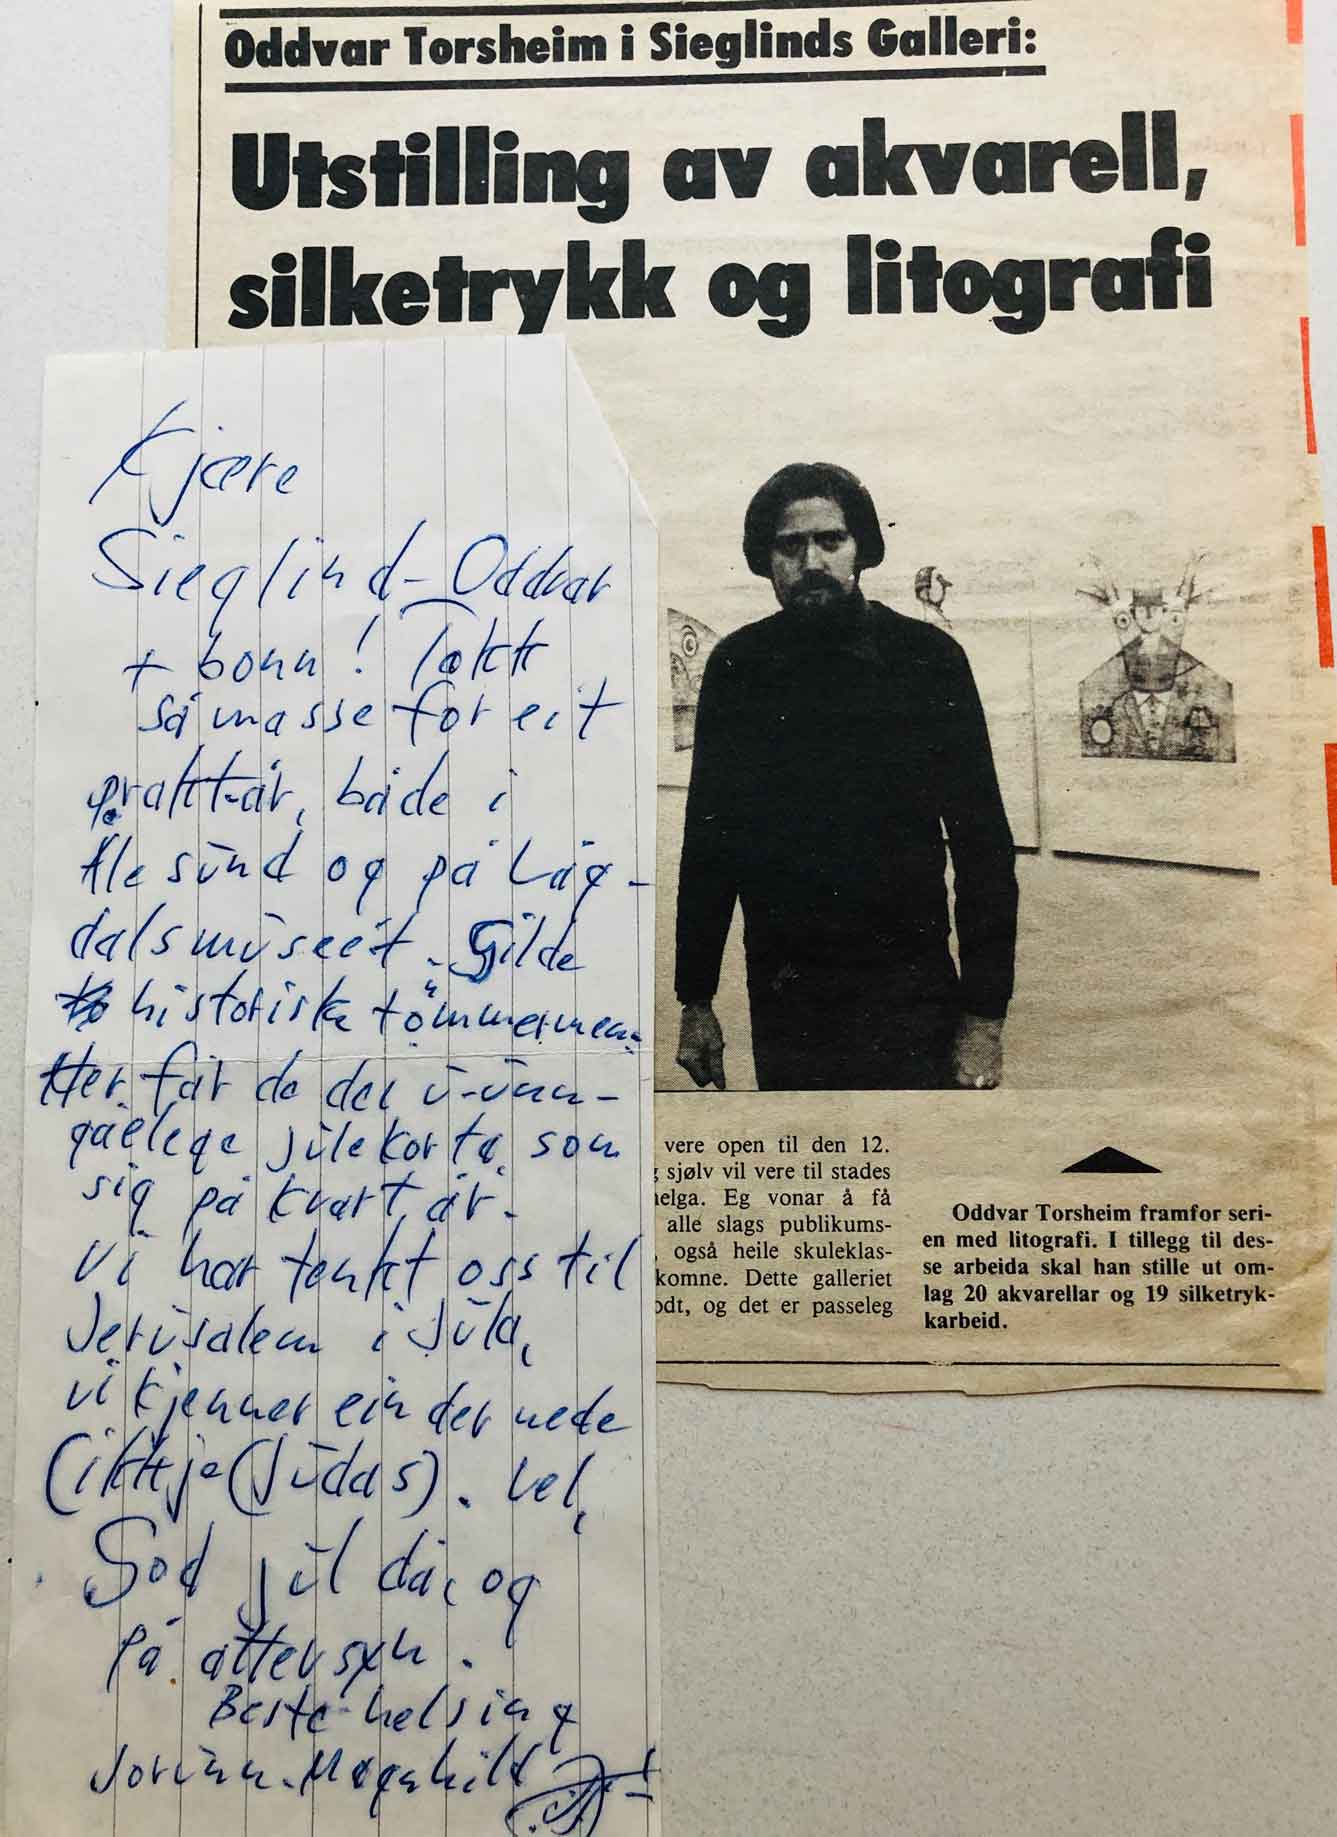 Oddvar Torsheim i Sieglinds Galleri:
Utstilling av akvarell,
silketrykk og litografi
Kjære
Sieglind-Oddvar
+ bonn! Takk
så masse for eit
prakt-år, både i
Ålesund og på Låg-
dalsmuseet. Gilde
historiske tömmermen-
ner får de dei u-unn-
gåelege julekorta, som
sig på kvart år.
Vi har tenkt oss til
Jerusalem i jula,
vi kjenner ein der nede
(ikkje (Judas). Vel,
God jul då, og
på attersyn.
Beste helsing
Jorunn. Magnhild
vere open til den 12.
sjølv vil vere til stades
helga. Eg vonar å få
alle slags publikums-
også heile skuleklas-
komne. Dette galleriet
odt, og det er passeleg
Oddvar Torsheim framfor seri-
en med litografi. I tillegg til des-
se arbeida skal han stille ut om-
lag 20 akvarellar og 19 silketryk-
karbeid.